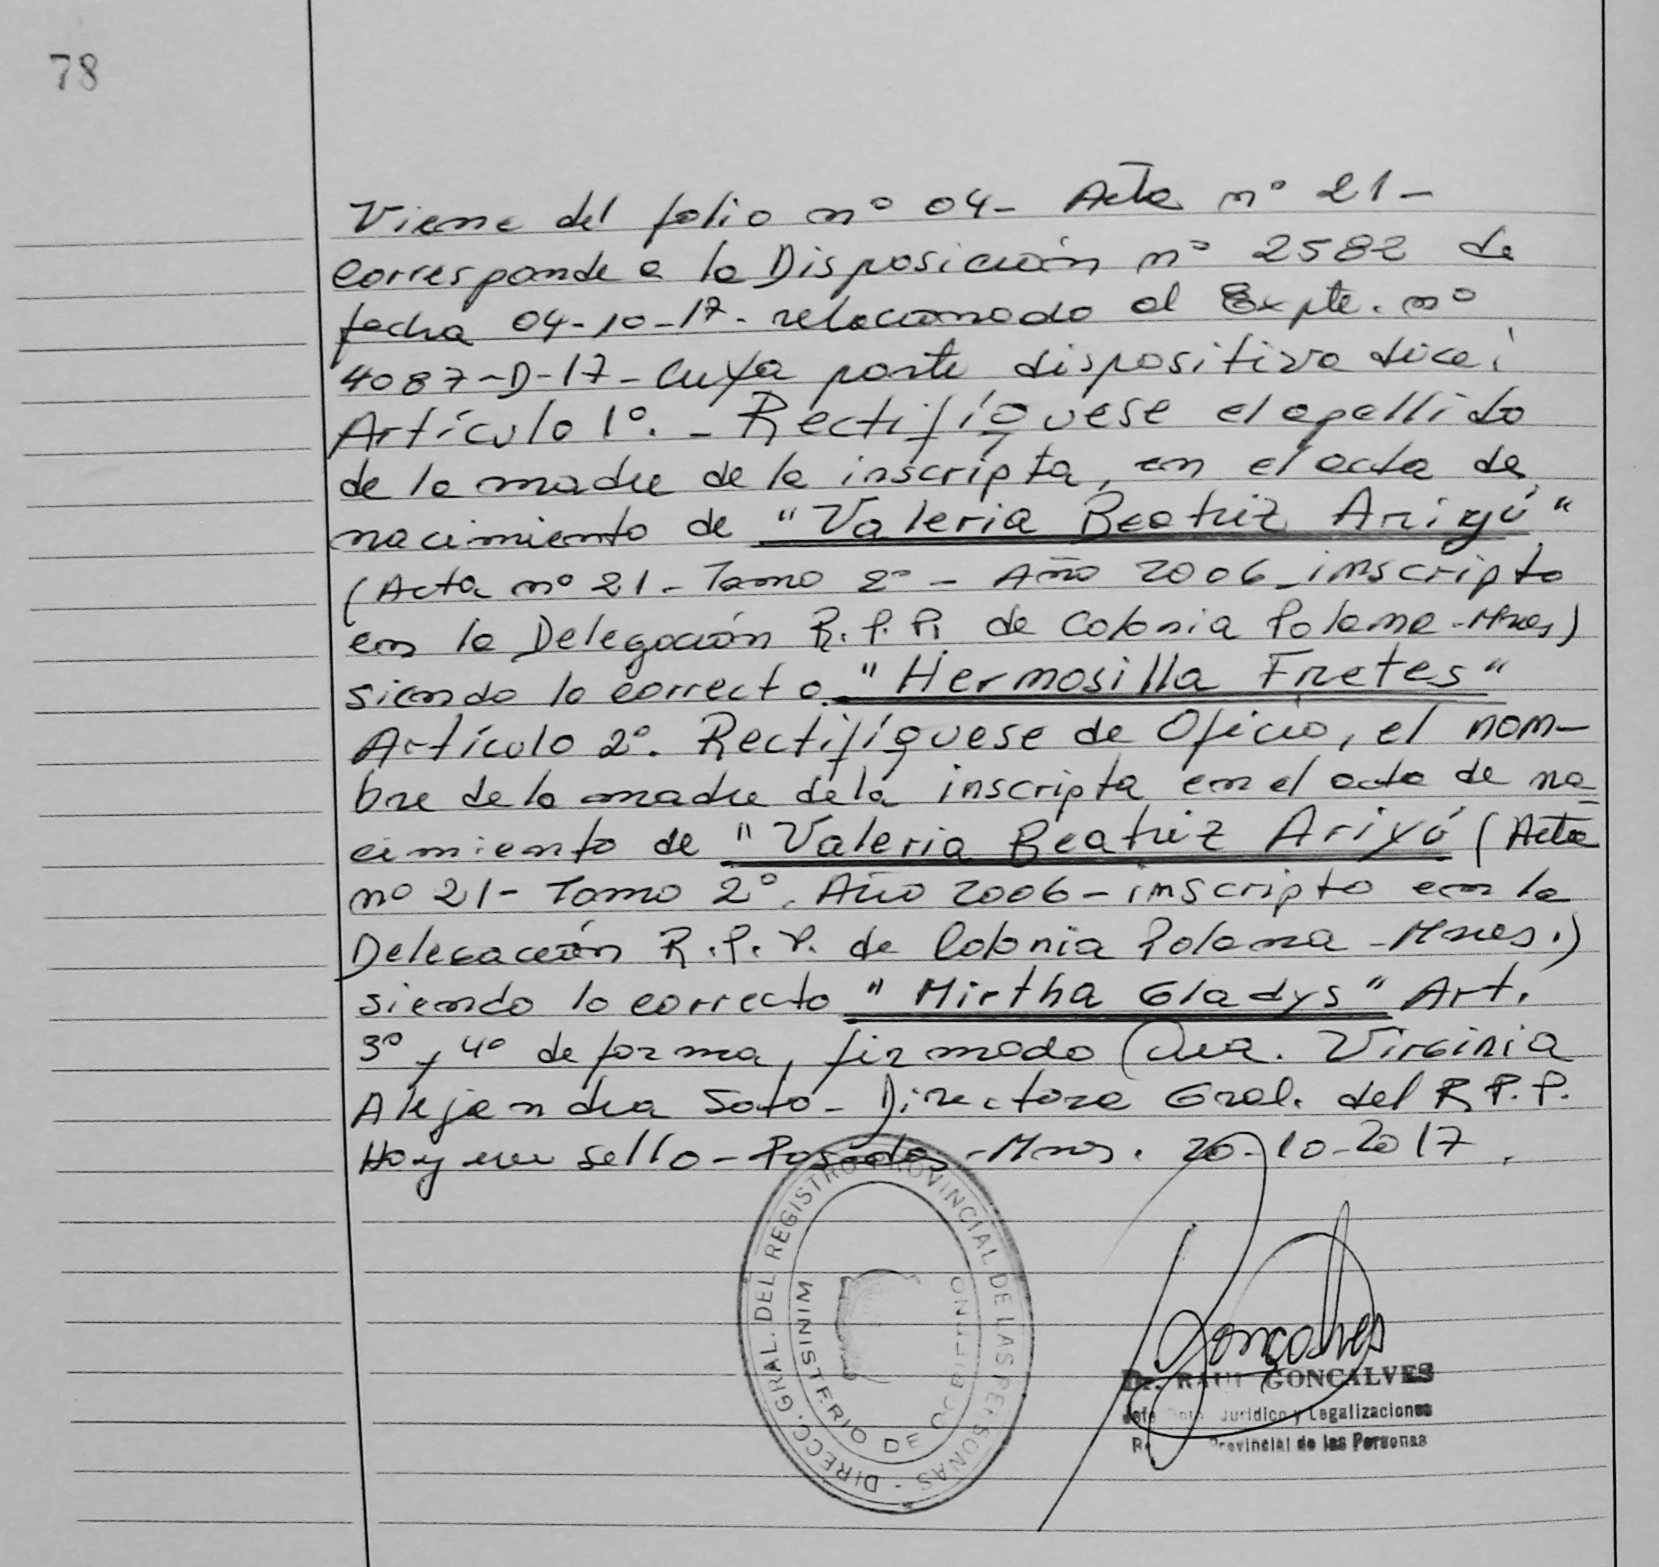 78
Viene del folio nº 04- Acta nº 21-
corresponde a la Disposición nº 2582 de
fecha 04-10-17- relacionado al Expte. nº
4087-D-17- cuya parte dispositiva dice:
Artículo 1º.- Rectifíquese el apellido
de la madre de la inscripta, en el acta de
nacimiento de "Valeria Beatriz Ariyú"
(Acta nº 21- Tomo 2º - Año 2006 - inscripto
en la Delegación R.P.P. de Colonia Polana -Mnes)
siendo lo correcto "Hermosilla Fretes"
Artículo 2º. Rectifíquese de Oficio, el nom-
bre de la madre de la inscripta en el acta de na-
cimiento de "Valeria Beatriz Ariyú (Acta
nº 21- Tomo 2º. Año 2006- inscripto en la
Delegación R.P.P. de Colonia Polana -Mnes.)
siendo lo correcto "Mirtha Gladys" Art.
3º y 4º de forma, firmado Dra. Virginia
Alejandra Soto- Directora Gral. del R.P.P.
Hay un sello- Posadas -Mnes. 20-10-2017.
DIRECC. GRAL. DEL REGISTRO PROVINCIAL DE LAS PERSONAS -
MINISTERIO DE GOBIERNO
Goncalves
Dr. RAUL GONCALVES
Jefe Dpto. Jurídico y Legalizaciones
Provincial de las Personas